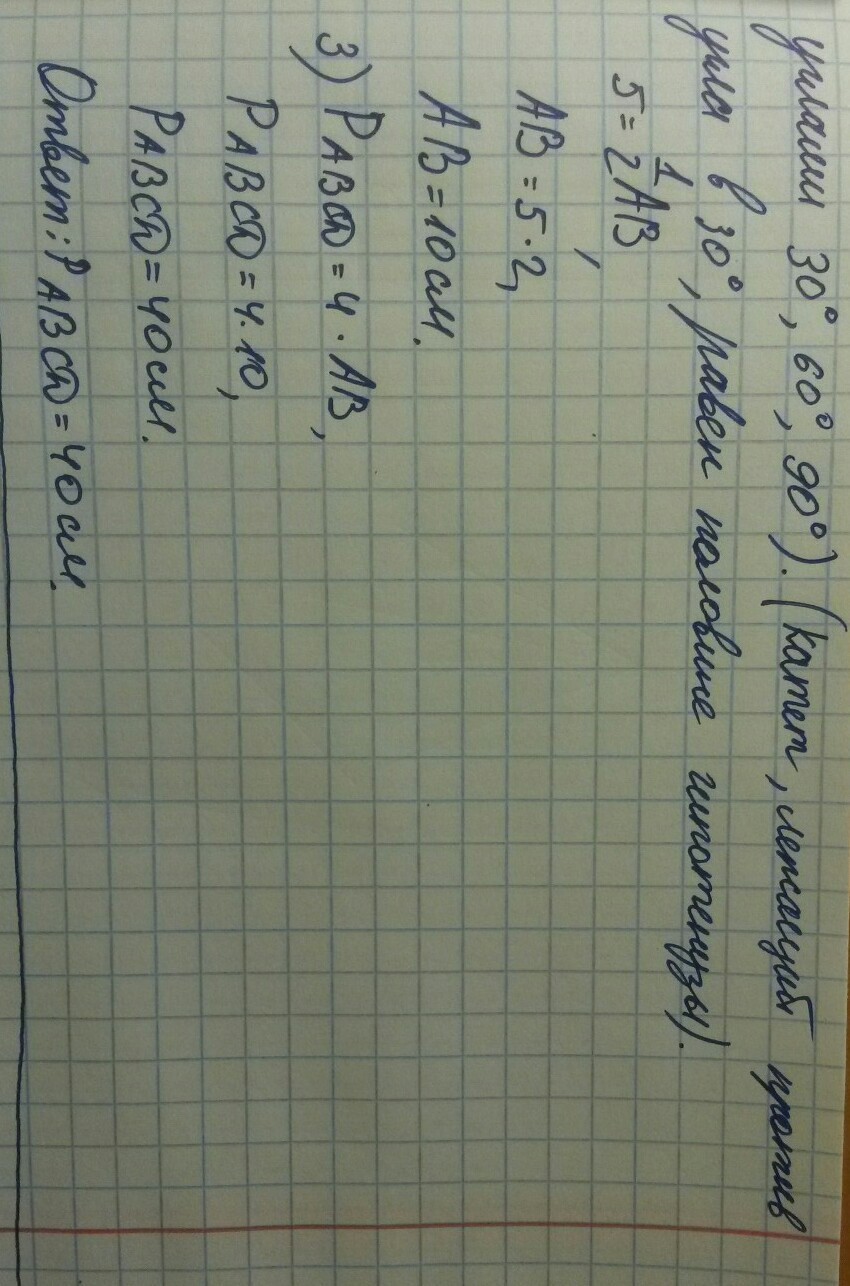 углами 30°, 60°, 90°). (катет, лежащий против
угла в 30°, равен половине гипотенузы).
5 = 1/2 AB,
AB = 5 · 2,
AB = 10 см.
3) P ABCD = 4 · AB,
P ABCD = 4 · 10,
P ABCD = 40 см.
Ответ: P ABCD = 40 см.